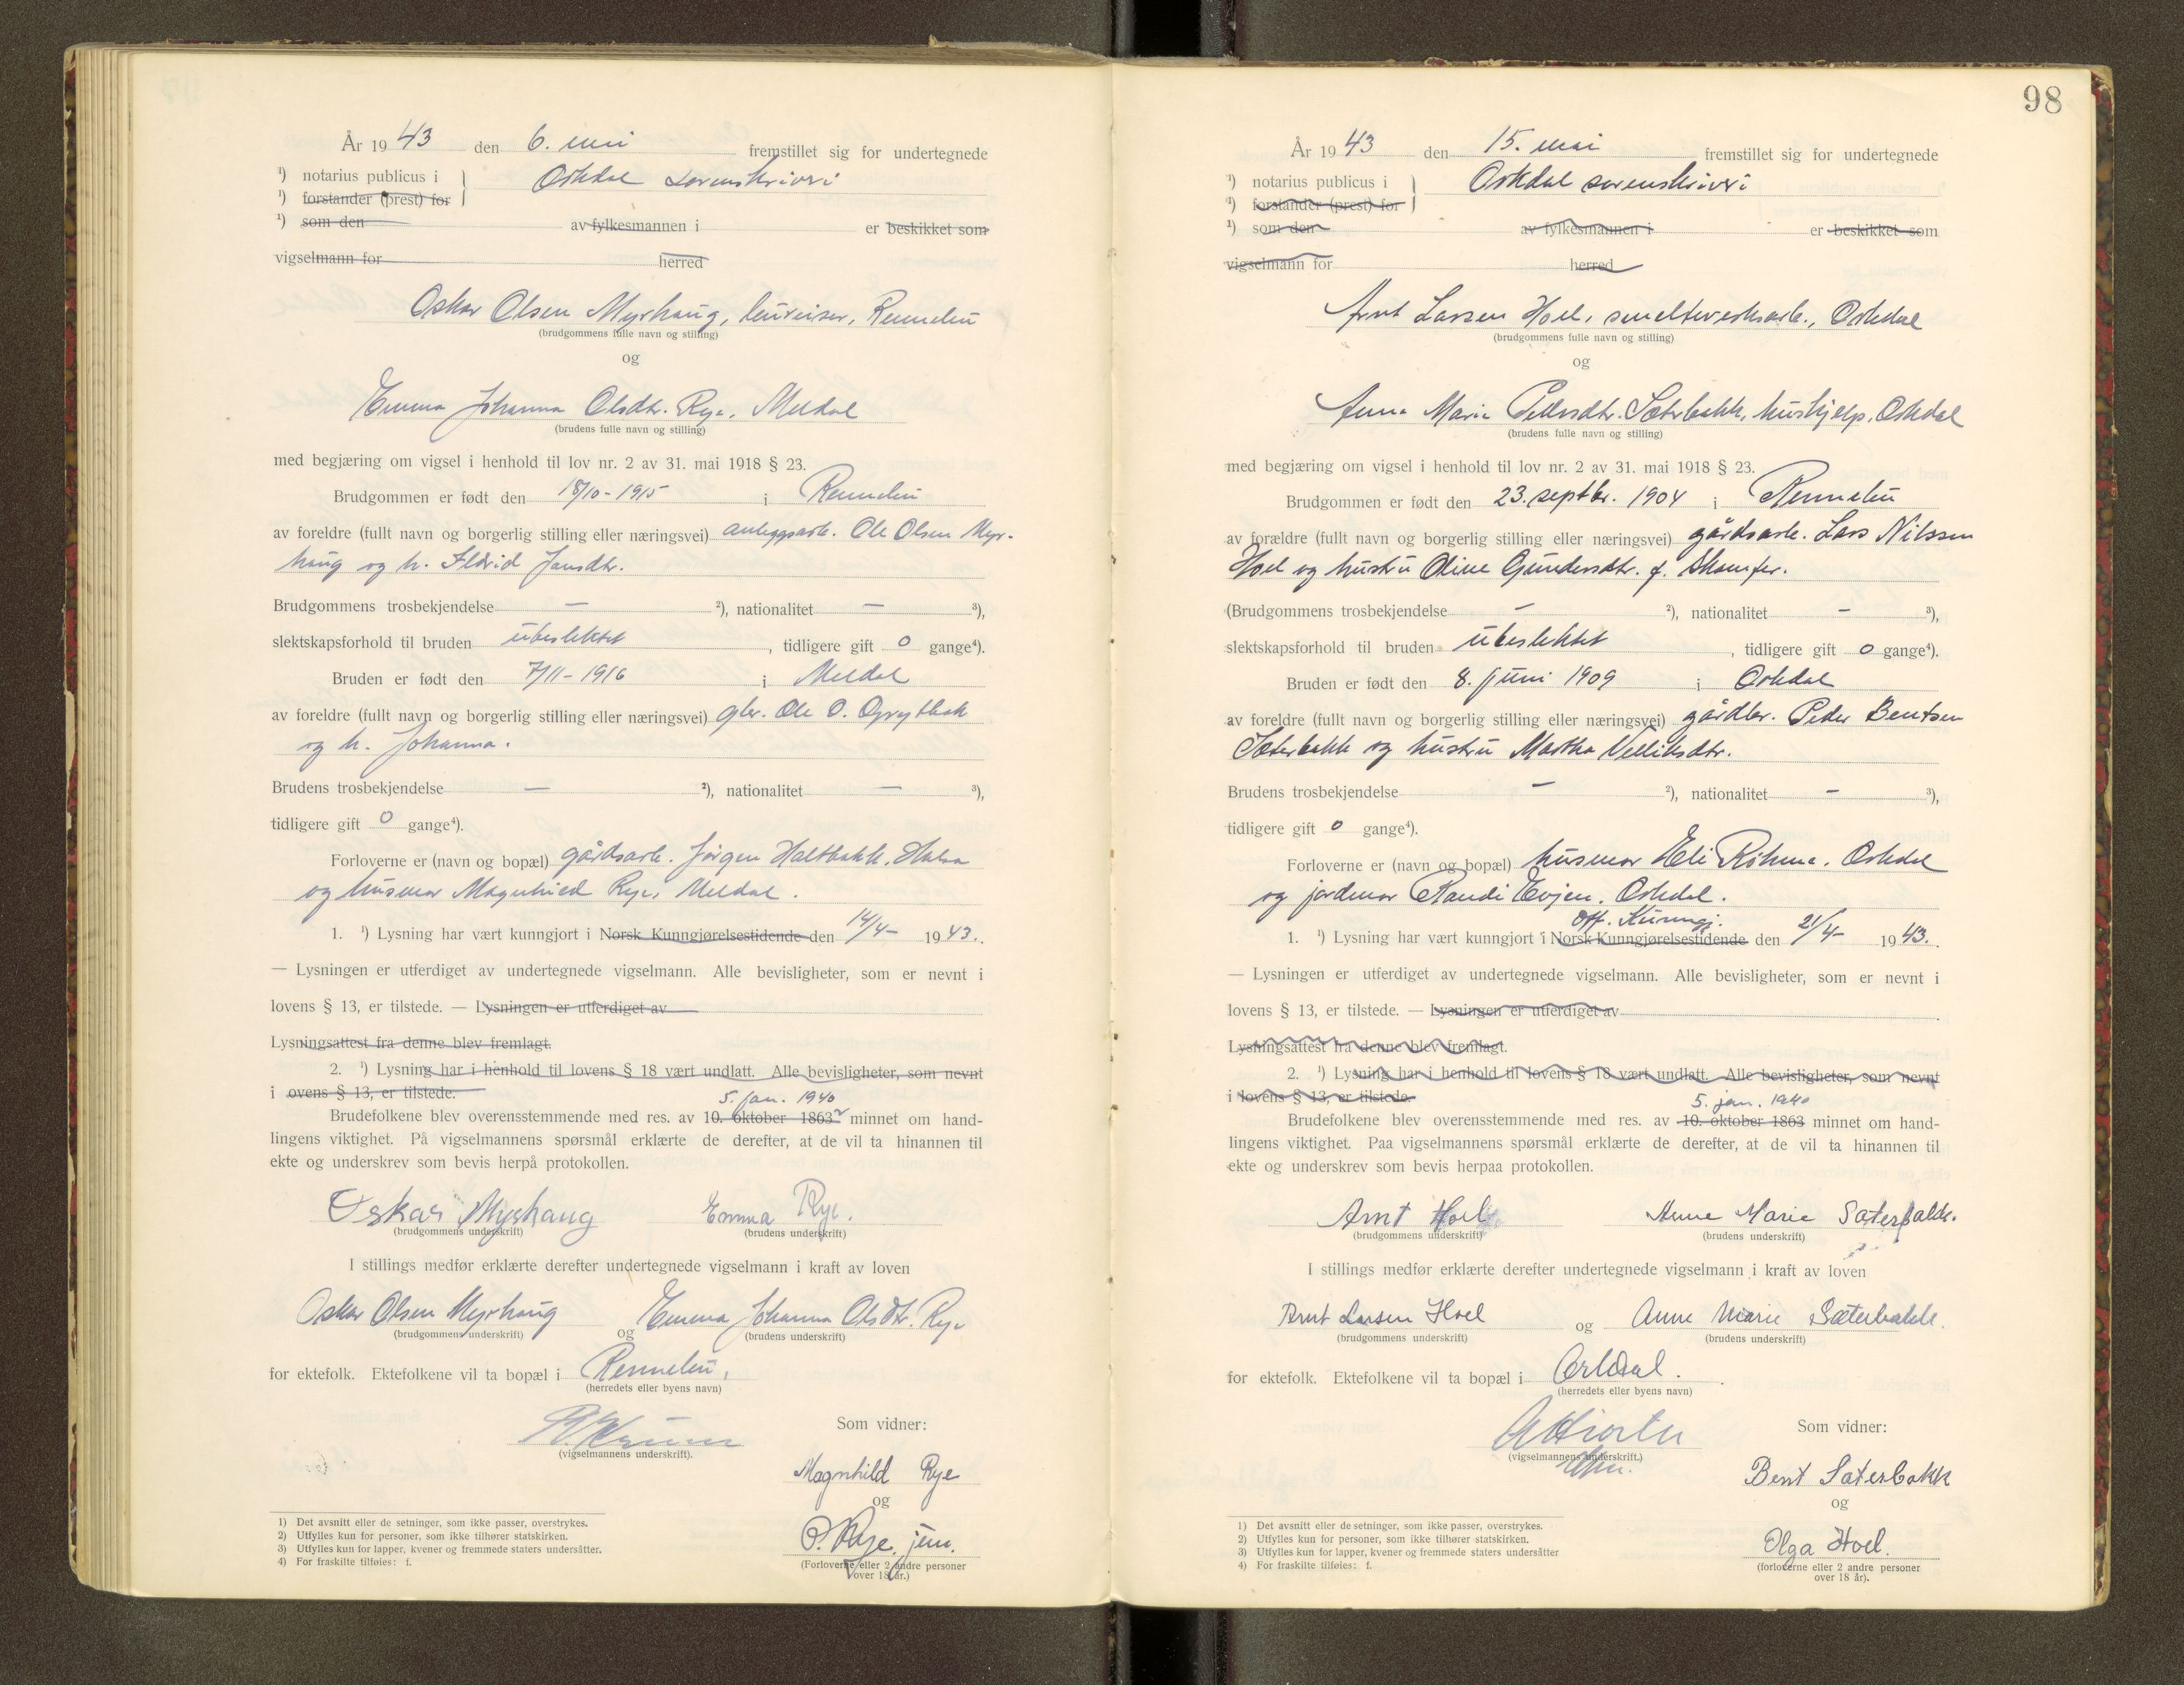 År 19 43 den 6. mai fremstillet sig for undertegnede
¹) notarius publicus i
Orkdal sorenskriveri
¹) forstander (prest) for
¹) som den av fylkesmannen i er beskikket som
vigselmann for herred
Oskar Olsen Myrhaug, Rennebu
(brudgommens fulle navn og stilling)
og
Emma Johanna Olsdtr. Rye, Meldal
(brudens fulle navn og stilling)
med begjæring om vigsel i henhold til lov nr. 2 av 31. mai 1918 § 23.
Brudgommen er født den 18/10-1915 i Rennebu
av foreldre (fullt navn og borgerlig stilling eller næringsvei) anleggsarb. Ole Olsen Myr-
haug og h. Jansdtr.
Brudgommens trosbekjendelse — ²), nationalitet — ³),
slektskapsforhold til bruden ubeslektet, tidligere gift 0 gange⁴).
Bruden er født den 7/11-1916 i Meldal
av foreldre (fullt navn og borgerlig stilling eller næringsvei) gbr. Ole O. Grytbak
og h. Johanna.
Brudens trosbekjendelse — ²), nationalitet — ³),
tidligere gift 0 gange⁴).
Forloverne er (navn og bopæl) gårdsarb. Jørgen Haltbakk,
og husmor Magnhild Rye, Meldal.
1. ¹) Lysning har vært kunngjort i Norsk Kunngjørelsestidende den 14/4- 1943.
— Lysningen er utferdiget av undertegnede vigselmann. Alle bevisligheter, som er nevnt i
lovens § 13, er tilstede. — Lysningen er utferdiget av
Lysningsattest fra denne blev fremlagt.
2. ¹) Lysning har i henhold til lovens § 18 vært undlatt. Alle bevisligheter, som nevnt
i ovens § 13, er tilstede.
5. jan. 1940
Brudefolkene blev overensstemmende med res. av 10. oktober 1863 minnet om hand-
lingens viktighet. På vigselmannens spørsmål erklærte de derefter, at de vil ta hinannen til
ekte og underskrev som bevis herpå protokollen.
Oskar Myrhaug Emma Rye.
(brudgommens underskrift) (brudens underskrift)
I stillings medfør erklærte derefter undertegnede vigselmann i kraft av loven
Oskar Olsen Myrhaug og Emma Johanna Olsdtr. Rye
(brudgommens underskrift) (brudens underskrift)
for ektefolk. Ektefolkene vil ta bopæl i Rennebu,
(herredets eller byens navn)
(vigselmannens underskrift).
Som vidner:
Magnhild Rye
og
O. Rye, jun.
(Forloverne eller 2 andre personer
over 18 år.)
1) Det avsnitt eller de setninger, som ikke passer, overstrykes.
2) Utfylles kun for personer, som ikke tilhører statskirken.
3) Utfylles kun for lapper, kvener og fremmede staters undersåtter.
4) For fraskilte tilføies: f.
98
År 19 43 den 15. mai fremstillet sig for undertegnede
¹) notarius publicus i
Orkdal sorenskriveri
¹) forstander (prest) for
¹) som den av fylkesmannen i er beskikket som
vigselmann for herred
Arnt Larsen Hoel, smelteverksarb., Orkdal
(brudgommens fulle navn og stilling)
og
Anne Marie Pedersdtr. Sæterbakk, hushjelp, Orkdal
(brudens fulle navn og stilling)
med begjæring om vigsel i henhold til lov nr. 2 av 31. mai 1918 § 23.
Brudgommen er født den 23. septbr. 1904 i Rennebu
av forældre (fullt navn og borgerlig stilling eller næringsvei) gårdsarb. Lars Nilssen
Hoel og hustru Oline Gundersdtr. f. Skamfer.
(Brudgommens trosbekjendelse — ²), nationalitet — ³),
slektskapsforhold til bruden ubeslektet, tidligere gift 0 gange⁴).
Bruden er født den 8. juni 1909 i Orkdal
av foreldre (fullt navn og borgerlig stilling eller næringsvei) gårdbr. Peder Bentsen
Sæterbakk og hustru Martha
Brudens trosbekjendelse — ²), nationalitet — ³),
tidligere gift 0 gange⁴).
Forloverne er (navn og bopæl) husmor Eli Røhme, Orkdal
og jordmor Randi Evjen, Orkdal.
Off. Kunngj.
1. ¹) Lysning har vært kunngjort i Norsk Kunngjørelsestidende den 21/4- 1943.
— Lysningen er utferdiget av undertegnede vigselmann. Alle bevisligheter, som er nevnt i
lovens § 13, er tilstede. — Lysningen er utferdiget av
Lysningsattest fra denne blev fremlagt.
2. ¹) Lysning har i henhold til lovens § 18 vært undlatt. Alle bevisligheter, som nevnt
i lovens § 13, er tilstede.
5. jan. 1940
Brudefolkene blev overensstemmende med res. av 10. oktober 1863 minnet om hand-
lingens viktighet. Paa vigselmannens spørsmål erklærte de derefter, at de vil ta hinannen til
ekte og underskrev som bevis herpaa protokollen.
Arnt Hoel Anne Marie Sæterbakk.
(brudgommens underskrift) (brudens underskrift)
I stillings medfør erklærte derefter undertegnede vigselmann i kraft av loven
Arnt Larsen Hoel og Anne Marie Sæterbakk.
(brudgommens underskrift) (brudens underskrift)
for ektefolk. Ektefolkene vil ta bopæl i Orkdal.
(herredets eller byens navn)
(vigselmannens underskrift.)
Som vidner:
Bent Sæterbakk
og
Olga Hoel.
(forloverne eller 2 andre personer
over 18 år).
1) Det avsnitt eller de setninger, som ikke passer, overstrykes.
2) Utfylles kun for personer, som ikke tilhører statskirken.
3) Utfylles kun for lapper, kvener og fremmede staters undersåtter
4) For fraskilte tilføies: f.